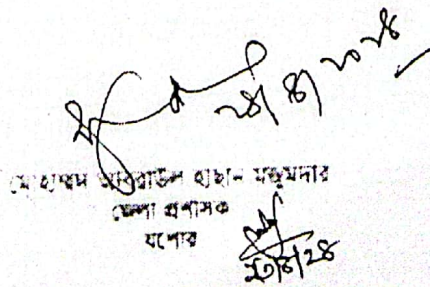 ২৪/৪/২০২৪
মোহাম্মদ আবরাউল হাছান মজুমদার
জেলা প্রশাসক
যশোর
২৩/৪/২৪